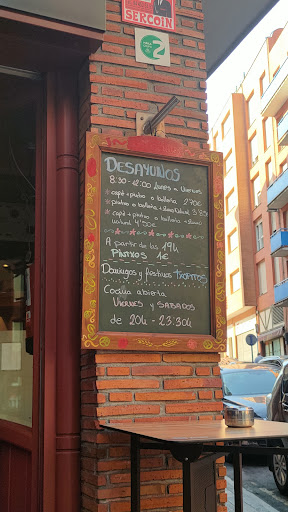 SERCOIN
DESAYUNOS
8:30-12:00 LUNES A VIERNES
café + pintxo o bollería 2'70€
pintxo o bollería + zumo natural 3'80
café + pintxo o bollería + zumo
natural 4'50€
A partir de las 19h
PINTXOS 1€
Domingos y festivos TXOPITOS
Cocina abierta
VIERNES y SABADOS
de 20h - 23:30h